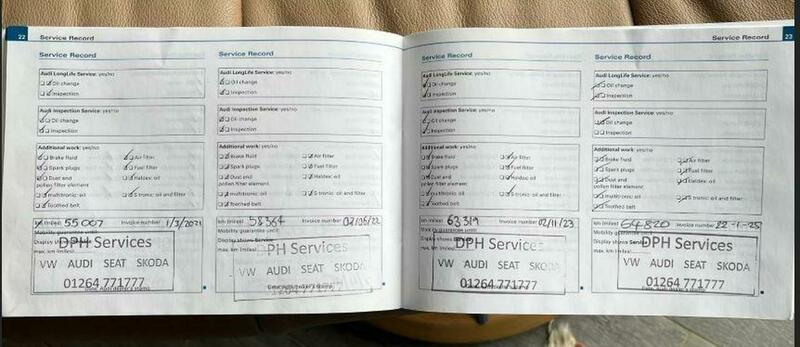 22 Service Record
Service Record
Audi LongLife Service: yes/no
Oil change
Inspection
Audi Inspection Service: yes/no
Oil change
Inspection
Additional work: yes/no
Brake fluid Air filter
Spark plugs Fuel filter
Dust and Haldex oil
pollen filter element
multitronic oil S tronic: oil and filter
Toothed belt
km (miles) 55 007 Invoice number 1/3/2021
Mobility guarantee until:
Display shows
max. km (miles)
DPH Services
VW AUDI SEAT SKODA
01264 771777
Service Record
Audi LongLife Service: yes/no
Oil change
Inspection
Audi Inspection Service: yes/no
Oil change
Inspection
Additional work: yes/no
Brake fluid Air filter
Spark plugs Fuel filter
Dust and Haldex oil
pollen filter element
multitronic oil S tronic: oil and filter
Toothed belt
km (miles) 58364 Invoice number
Mobility guarantee until:
Display shows Service
max. km (miles)
PH Services
VW AUDI SEAT SKODA
01264 771777
Service Record 23
Service Record
Audi LongLife Service: yes/no
Oil change
Inspection
Audi Inspection Service: yes/no
Oil change
Inspection
Additional work: yes/no
Brake fluid Air filter
Spark plugs Fuel filter
Dust and Haldex oil
pollen filter element
multitronic oil S tronic: oil and filter
Toothed belt
km (miles) 63 319 Invoice number 02/11/23
Mobility guarantee until:
Display shows
max. km (miles)
DPH Services
VW AUDI SEAT SKODA
01264 771777
Service Record
Audi LongLife Service: yes/no
Oil change
Inspection
Audi Inspection Service: yes/no
Oil change
Inspection
Additional work: yes/no
Brake fluid Air filter
Spark plugs Fuel filter
Dust and Haldex oil
pollen filter element
multitronic oil S tronic: oil and filter
Toothed belt
km (miles) 64820 Invoice number 22-1-25
Mobility guarantee until:
Display shows Service
max. km (miles)
DPH Services
VW AUDI SEAT SKODA
01264 771777